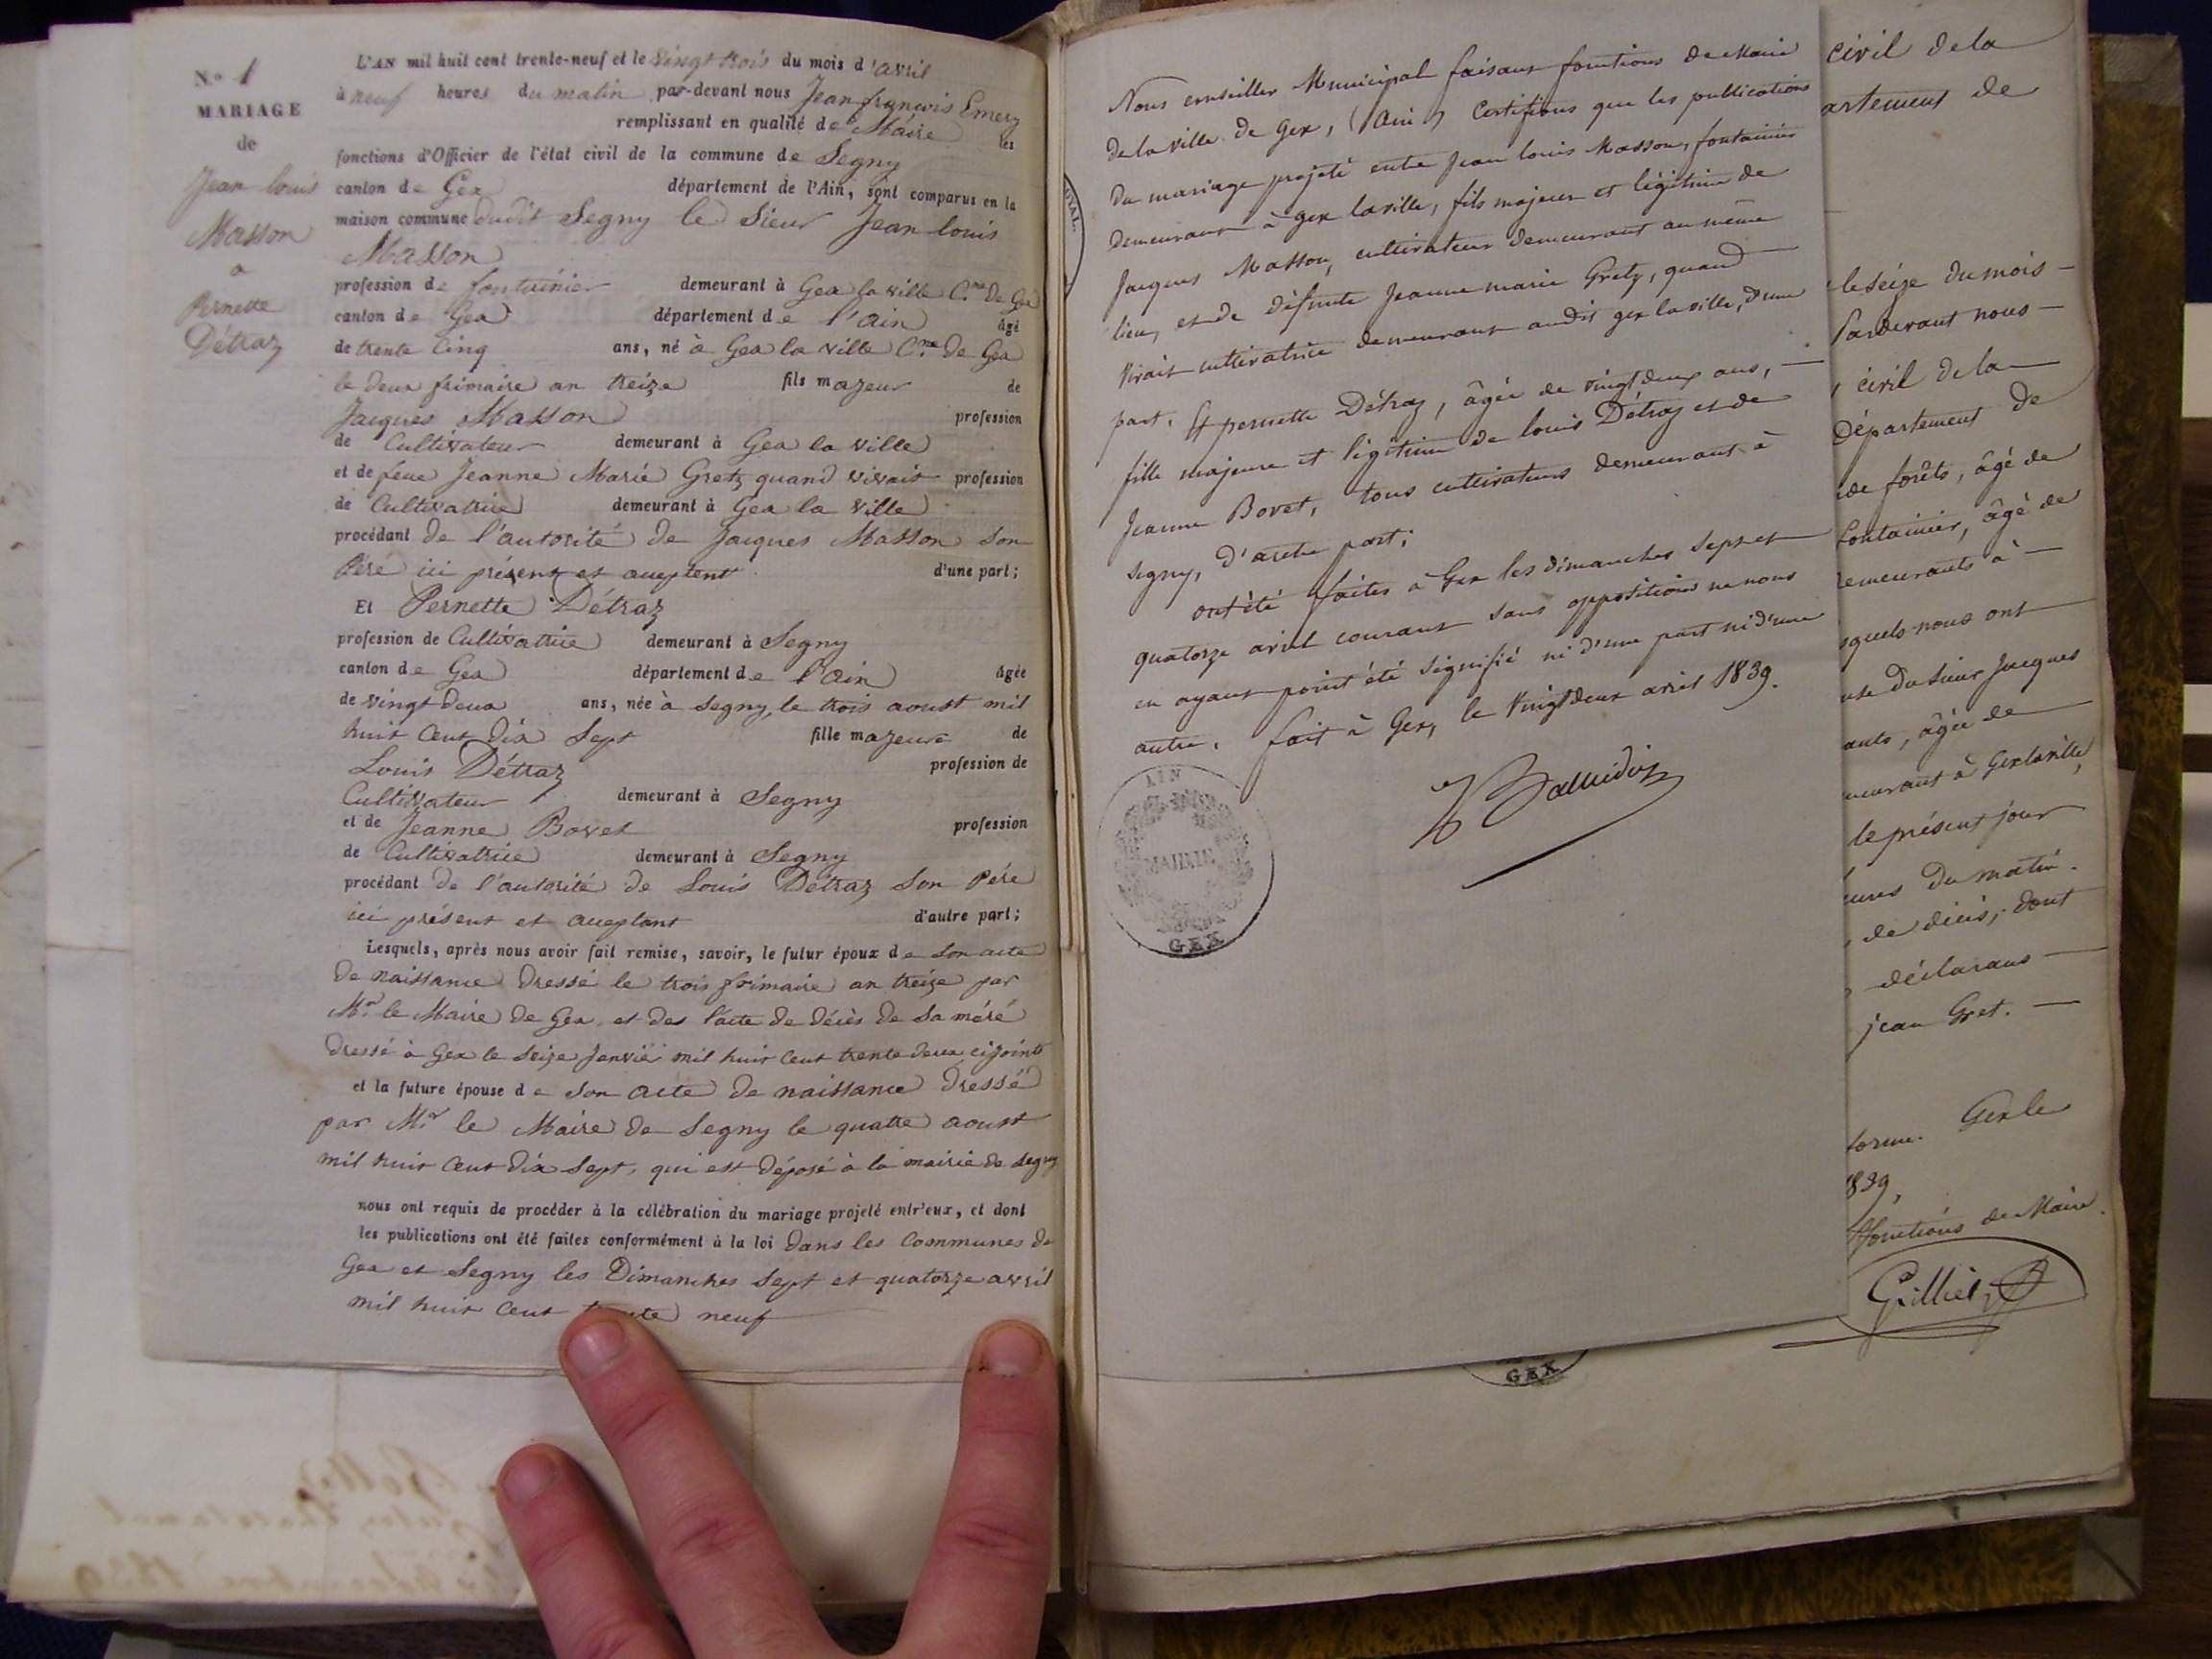 N.º 1
MARIAGE
de
Jean louis
Masson
a
Pernette
Détraz
L'AN mil huit cent trente-neuf et le vingt trois du mois d'avril
à neuf heures du matin par-devant nous Jean françois Emery
remplissant en qualité de Maire les
fonctions d'Officier de l'état civil de la commune de Segny
canton de Gex département de l'Ain, sont comparus en la
maison commune dudit Segny le Sieur Jean louis
Masson
profession de fontainier demeurant à Gex la ville C.ne De Gex
canton de Gex département de l'ain âgé
de trente Cinq ans, né à Gex la ville C.ne De Gex
le deux frimaire an treize fils majeur de
Jacques Masson profession
de Cultivateur demeurant à Gex la ville
et de feue Jeanne Marie Gretz quand vivait profession
de Cultivatrice demeurant à Gex la ville
procédant de l'autorité de Jacques Masson Son
Péré ici présent et aceptent d'une part;
Et Pernette Détraz
profession de Cultivatrice demeurant à Segny
canton de Gex département de l'ain âgée
de vingt deux ans, née à Segny, le trois aoust mil
huit Cent Dix Sept fille majeure de
Louis Détraz profession de
Cultivateur demeurant à Segny
et de Jeanne Bovet profession
de Cultivatrice demeurant à Segny
procédant de l'autorité de Louis Détraz Son Pére
ici présent et aceptant d'autre part;
Lesquels, après nous avoir fait remise, savoir, le futur époux de Son acte
De naissance Dressé le trois frimaire an treize par
Mr. le Maire De Gex et des l'acte de décès de Sa mére
Dressé à Gex le Seize Janvier mil huit Cent trente deux cijoints
et la future épouse de Son acte De naissance Dressé
par Mr. le Maire De Segny le quatre aoust
mil huit Cent Dix Sept, qui est déposé à la mairie de Segny
nous ont requis de procéder à la célébration du mariage projeté entr'eux, et dont
les publications ont été faites conformément à la loi dans les Communes de
Gex et Segny les Dimanches Sept et quatorze avril
mil huit Cent trente neuf
Nous conseiller Municipal faisant fonctions de Maire
de la ville de Gex, (Ain) Certifions que les publications
du mariage projeté entre Jean louis Masson, fontainier
demeurant à gex la ville, fils majeur et légitime de
Jacques Masson, cultivateur demeurant au même
lieu, et de défunte Jeanne marie Gretz, quand
vivait cultivatrice demeurant audit gex la ville, d'une
part. Et pernette Détraz, âgée de vingt deux ans, —
fille majeure et légitime de louis Détraz et de
Jeanne Bovet, tous cultivateurs demeurant à
segny, d'autre part;
ont été faites à Gex les dimanches sept et
quatorze avril courant sans oppositions ne nous
en ayant point été signifié ni d'une part ni d'une
autre. fait à Gex, le vingt deux avril 1839.
AIN
MAIRIE
GEX
civil de la
artement de
le seize du mois —
Pardevant nous —
civil de la —
Département de
de forêts, âgé de
fontainier, âgé de
demeurants à —
squels nous ont
use du sieur Jacques
ants, âgée de
meurant à Gex la ville,
le présent jour
eures du matin.
de décès; dont
déclarans —
jean Gret. —
forme. Gex le
1839,
fonctions de Maire.
Gilliet
GEX